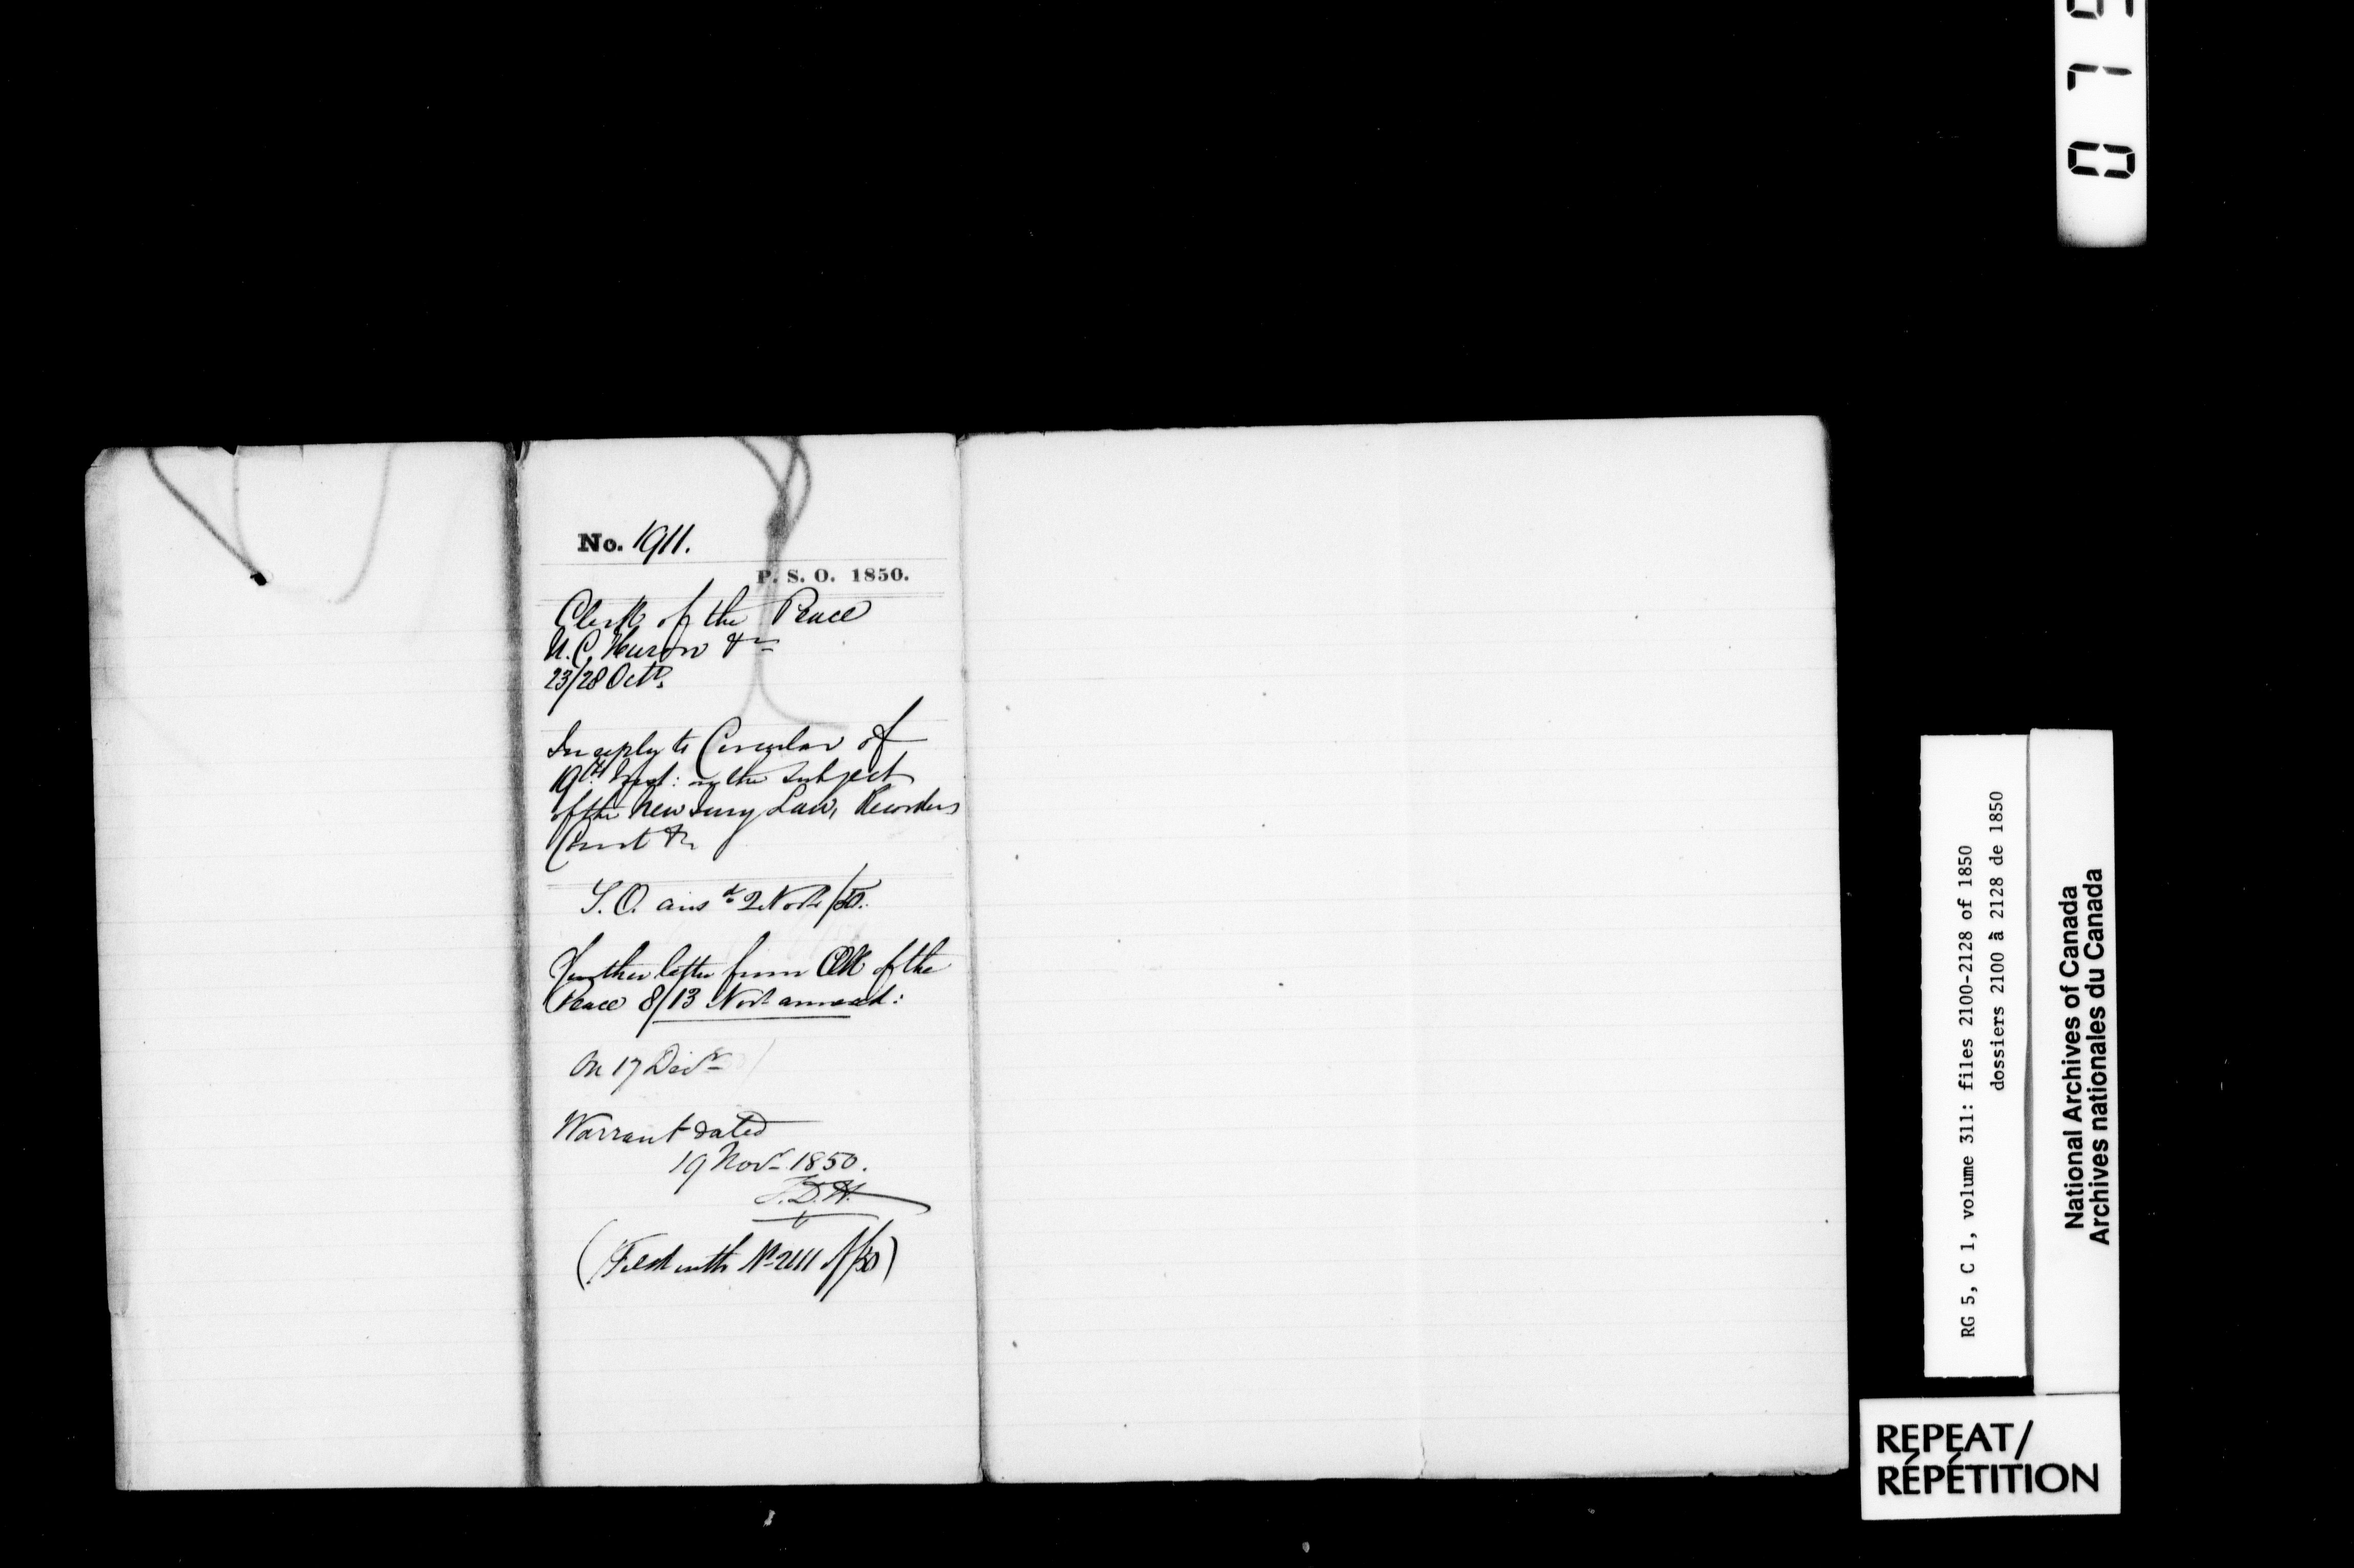 No. 1911.
P. S. O. 1850.
Clerk of the Peace
U.C. Huron &c
23/28 Octr.
In reply to Circular of
19th Inst: on the subject
of the New Jury Law, Recorders
Court &c
S.O. ansd 2 Novr/50.
Further letter from Clk of the
Peace 8/13 Novr annexed:
On 17 Decr
Warrant dated
19 Novr 1850.
J.D.H.
(Filed with No 2111 of/50)
0 7 5
RG 5, C 1, volume 311: files 2100-2128 of 1850
dossiers 2100 à 2128 de 1850
National Archives of Canada
Archives nationales du Canada
REPEAT/
RÉPÉTITION